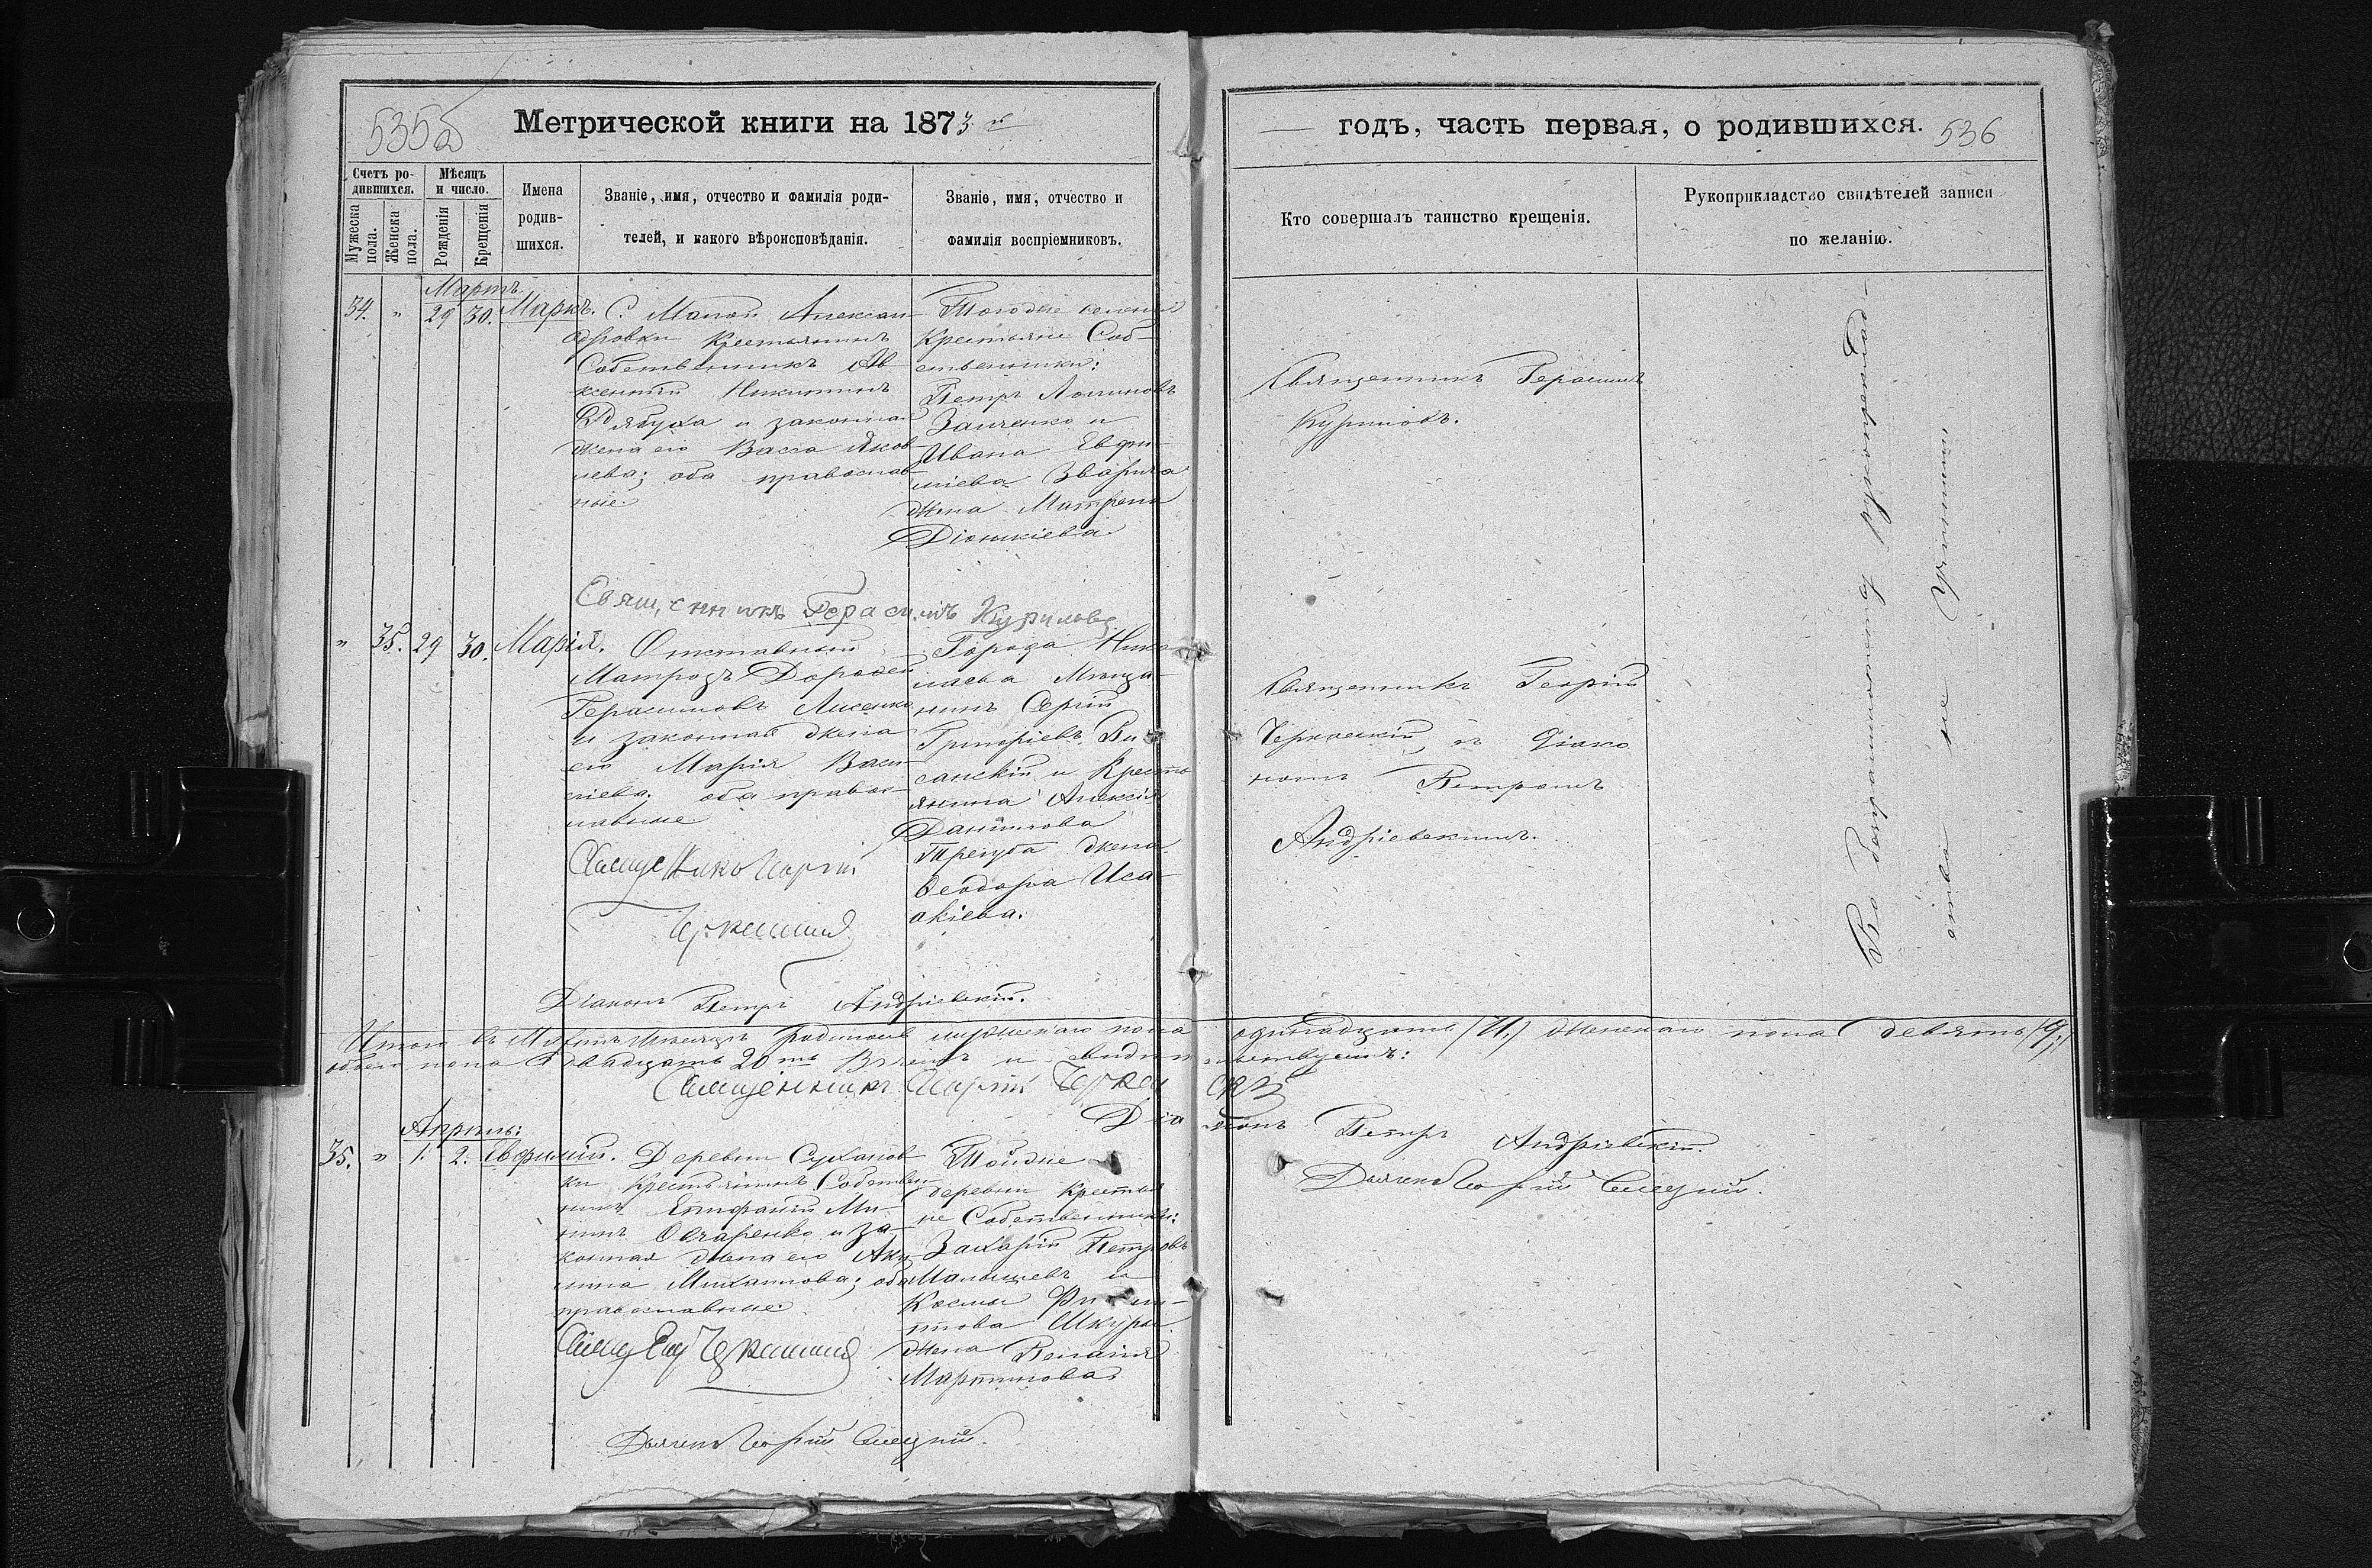 535об
Метрической книги на 1873 й
Счетъ ро-
дившихся.
Мужеска
пола.
Женска
пола.
Мѣсяцъ
и число.
Рожденія
Крещенія
Имена
родив-
шихся.
Званіе, имя, отчество и фамилія роди-
телей, и какого вѣроисповѣданія.
Званіе, имя, отчество и
фамилія воспріемниковъ.
Мартъ
34. " 29 30. Маркъ.
С. Малой Алексан
дровки крестьянинъ
Собственникъ Ав
ксентій Никитинъ
Рябуха и законная
жена его Васса Яков
лева; оба православ
ные.
Тогоже селенія
Крестьяне Соб-
ственники:
Петръ Логиновъ
Заиченко и
Ивана Евфи-
міева Зварича
жена Матрена
Діонисіева.
Священникъ Герасимъ Куриловъ
" 35. 29 30. Марія.
Отставный
Матрозъ Дорофей
Герасимовъ Лисенко
и законная жена
его Марія Васи-
ліева, оба правос-
лавные
Города Нико
лаева Мѣща-
нинъ Сергій
Григоріевъ
санскій и Кресть
янина Алексія
Даниілова
Трегуба жена
Ѳеодора Иса-
акіева.
Діаконъ Петръ Андріевскій.
Итого въ Мартѣ мѣсяцѣ родилось мужескаго пола одинадцать (11,) женскаго пола девять (9,)
обоего пола двадцать 20ть Вѣрно и свидѣтельствуемъ:
Священникъ Георгій
Діаконъ Петръ Андріевскій.
Апрѣль:
35. " 1. 2. Евфимій.
Деревни Суханов
ки крестьянинъ Собствен
никъ Епифаній Ми-
нинъ Овчаренко и за-
конная жена его Аку
лина Михаилова; оба
православные.
Тойже
деревни крестья
не Собственники:
Захарій Петровъ
Малышевъ и
Космы Фи
това Шкуры
жена Пелагія
Мартинова
годъ, часть первая, о родившихся.
536
Кто совершалъ таинство крещенія.
Рукоприкладство свидѣтелей записи
по желанію.
Священникъ Герасимъ
Куриловъ.
Священникъ Георгій
Черкаскій, съ Діако
номъ Петромъ
Андріевскимъ.
По безграмотству рукоприклад-
ства не учинили